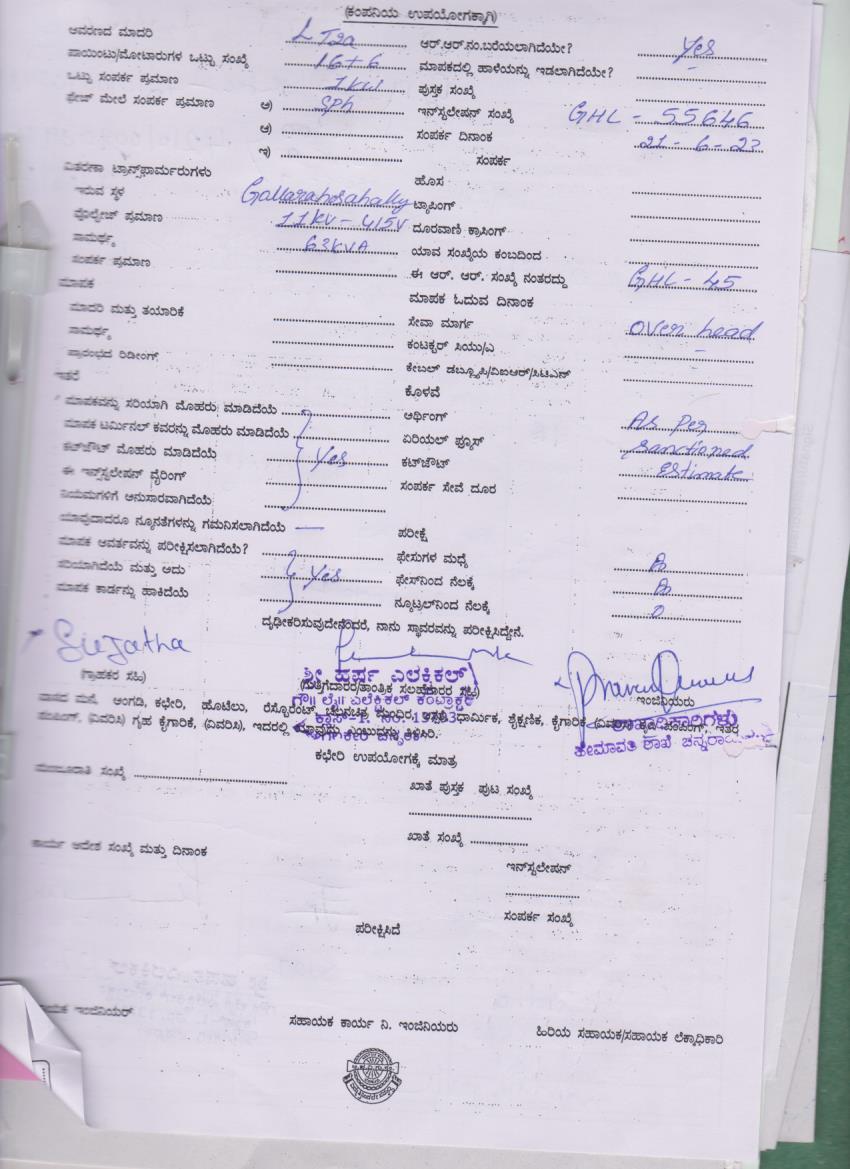 (ಕಂಪನಿಯ ಉಪಯೋಗಕ್ಕಾಗಿ)
ಆವರಣದ ಮಾದರಿ LT2a ಆರ್.ಆರ್.ನಂ.ಬರೆಯಲಾಗಿದೆಯೇ? Yes
ಪಾಯಿಂಟು/ಮೋಟಾರುಗಳ ಒಟ್ಟು ಸಂಖ್ಯೆ 16+6 ಮಾಪಕದಲ್ಲಿ ಹಾಳೆಯನ್ನು ಇಡಲಾಗಿದೆಯೇ? -
ಒಟ್ಟು ಸಂಪರ್ಕ ಪ್ರಮಾಣ 1KW ಪುಸ್ತಕ ಸಂಖ್ಯೆ
ಫೇಜ್ ಮೇಲೆ ಸಂಪರ್ಕ ಪ್ರಮಾಣ ಅ) Sph ಇನ್‌ಸ್ಟಲೇಷನ್ ಸಂಖ್ಯೆ GHL - 55646
ಆ) ಸಂಪರ್ಕ ದಿನಾಂಕ 21-6-23
ಇ) ಸಂಪರ್ಕ
ವಿತರಣಾ ಟ್ರಾನ್ಸ್‌ಫಾರ್ಮರುಗಳು ಹೊಸ
ಇರುವ ಸ್ಥಳ Gollarahosahally ಟ್ಯಾಪಿಂಗ್
ವೊಲ್ಟೇಜ್ ಪ್ರಮಾಣ 11KV - 415V ದೂರವಾಣಿ ಕ್ರಾಸಿಂಗ್
ಸಾಮರ್ಥ್ಯ 63KVA ಯಾವ ಸಂಖ್ಯೆಯ ಕಂಬದಿಂದ
ಸಂಪರ್ಕ ಪ್ರಮಾಣ ಈ ಆರ್. ಆರ್. ಸಂಖ್ಯೆ ನಂತರದ್ದು GHL - 45
ಮಾಪಕ ಮಾಪಕ ಓದುವ ದಿನಾಂಕ
ಮಾದರಿ ಮತ್ತು ತಯಾರಿಕೆ ಸೇವಾ ಮಾರ್ಗ Over head
ಸಾಮರ್ಥ್ಯ ಕಂಟಕ್ಟರ್ ಸಿಯು/ಎ -
ಪ್ರಾರಂಭದ ರಿಡೀಂಗ್ ಕೇಬಲ್ ಡಬ್ಲ್ಯೂಪಿ/ವಿಐಆರ್/ಸಿಟಿಎನ್
ಇತರೆ ಕೊಳವೆ
ಮಾಪಕವನ್ನು ಸರಿಯಾಗಿ ಮೊಹರು ಮಾಡಿದೆಯೆ ಆರ್ಥಿಂಗ್ As per
ಮಾಪಕ ಟರ್ಮಿನಲ್ ಕವರನ್ನು ಮೊಹರು ಮಾಡಿದೆಯೆ ಏರಿಯಲ್ ಫ್ಯೂಸ್ Sanctioned
ಕಟ್‌ಔಟ್ ಮೊಹರು ಮಾಡಿದೆಯೆ Yes ಕಟ್‌ಔಟ್ Estimate
ಈ ಇನ್‌ಸ್ಟಲೇಷನ್ ವೈರಿಂಗ್ ಸಂಪರ್ಕ ಸೇವೆ ದೂರ
ನಿಯಮಗಳಿಗೆ ಅನುಸಾರವಾಗಿದೆಯೆ
ಯಾವುದಾದರೂ ನ್ಯೂನತೆಗಳನ್ನು ಗಮನಿಸಲಾಗಿದೆಯೆ — ಪರೀಕ್ಷೆ
ಮಾಪಕ ಆವರ್ತವನ್ನು ಪರೀಕ್ಷಿಸಲಾಗಿದೆಯೆ? ಫೇಸುಗಳ ಮಧ್ಯೆ
ಸರಿಯಾಗಿದೆಯೆ ಮತ್ತು ಅದು Yes ಫೇಸ್‌ನಿಂದ ನೆಲಕ್ಕೆ
ಮಾಪಕ ಕಾರ್ಡನ್ನು ಹಾಕಿದೆಯೆ ನ್ಯೂಟ್ರಲ್‌ನಿಂದ ನೆಲಕ್ಕೆ 0
ದೃಢೀಕರಿಸುವುದೇನೆಂದರೆ, ನಾನು ಸ್ಥಾವರವನ್ನು ಪರೀಕ್ಷಿಸಿದ್ದೇನೆ.
Sujatha
ಶ್ರೀ ಹರ್ಷ ಎಲೆಕ್ಟ್ರಿಕಲ್
(ಗ್ರಾಹಕರ ಸಹಿ) (ಗುತ್ತಿಗೆದಾರರ/ತಾಂತ್ರಿಕ ಸಲಹೆದಾರರ ಸಹಿ) ಇಂಜಿನಿಯರು
ವಾಸದ ಮನೆ, ಅಂಗಡಿ, ಕಛೇರಿ, ಹೋಟೆಲು, ರೆಸ್ಟೊರೆಂಟ್, ಧಾರ್ಮಿಕ, ಶೈಕ್ಷಣಿಕ, ಕೈಗಾರಿಕೆ (ವಿವರಿಸಿ) ಇತರ
ಶಾಖಾಧಿಕಾರಿಗಳು
(ವಿವರಿಸಿ) ಗೃಹ ಕೈಗಾರಿಕೆ, (ವಿವರಿಸಿ), ಇದರಲ್ಲಿ ಯಾವುದು ಎಂಬುದನ್ನು ತಿಳಿಸಿರಿ.
ಹೇಮಾವತಿ ಶಾಖೆ
ಕಛೇರಿ ಉಪಯೋಗಕ್ಕೆ ಮಾತ್ರ
ಮಂಜೂರಾತಿ ಸಂಖ್ಯೆ ಖಾತೆ ಪುಸ್ತಕ ಪುಟ ಸಂಖ್ಯೆ
ಖಾತೆ ಸಂಖ್ಯೆ
ಕಾರ್ಯ ಆದೇಶ ಸಂಖ್ಯೆ ಮತ್ತು ದಿನಾಂಕ
ಇನ್‌ಸ್ಟಲೇಷನ್
ಸಂಪರ್ಕ ಸಂಖ್ಯೆ
ಪರೀಕ್ಷಿಸಿದೆ
ಇಂಜಿನಿಯರ್ ಸಹಾಯಕ ಕಾರ್ಯ ನಿ. ಇಂಜಿನಿಯರು ಹಿರಿಯ ಸಹಾಯಕ/ಸಹಾಯಕ ಲೆಕ್ಕಾಧಿಕಾರಿ